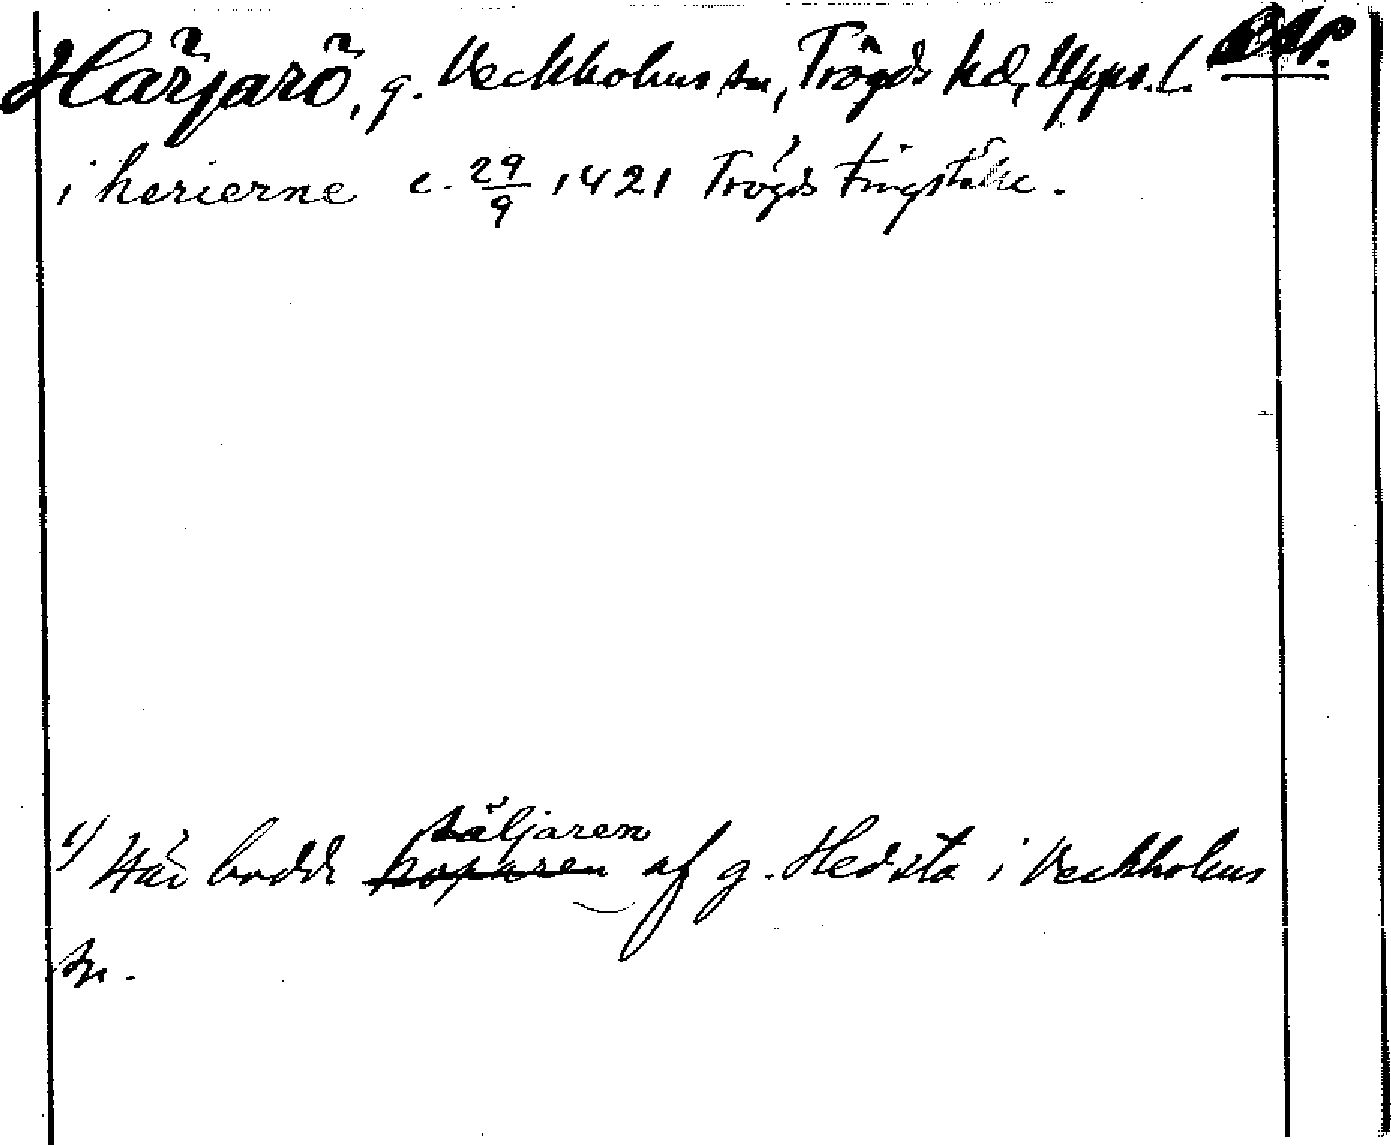 Härjarö, g. Veckholms sn, Trögds hd, Upps. l.
i herierne c. 29/9 1421 Trögds tingställe.
1) Här bodde säljaren
köparen af g. Hedsta i Veckholms
sn.